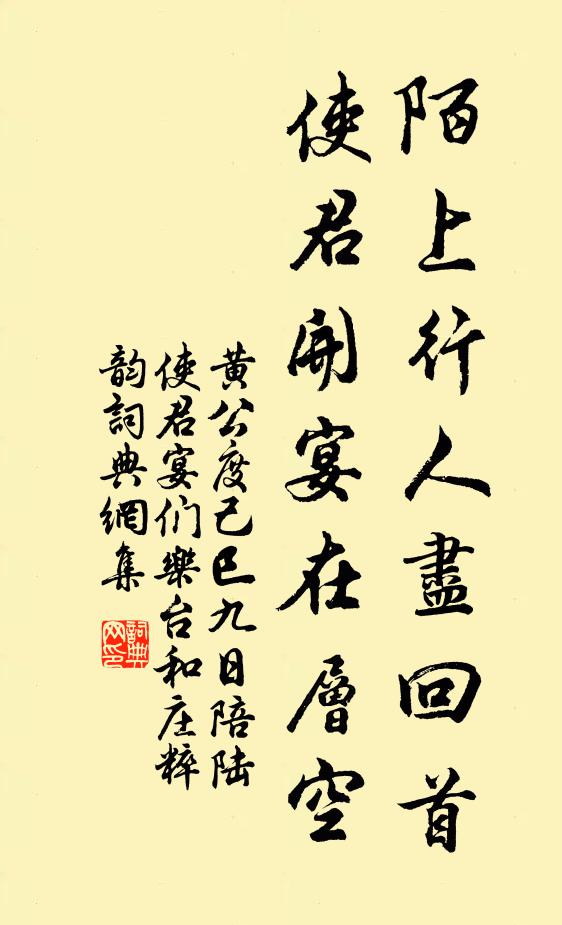 陌上行人盡回首
使君開宴在層空
黄公度己巳九日陪陆
使君宴们樂台和庄粹
韵詞典網集
詞典
网印